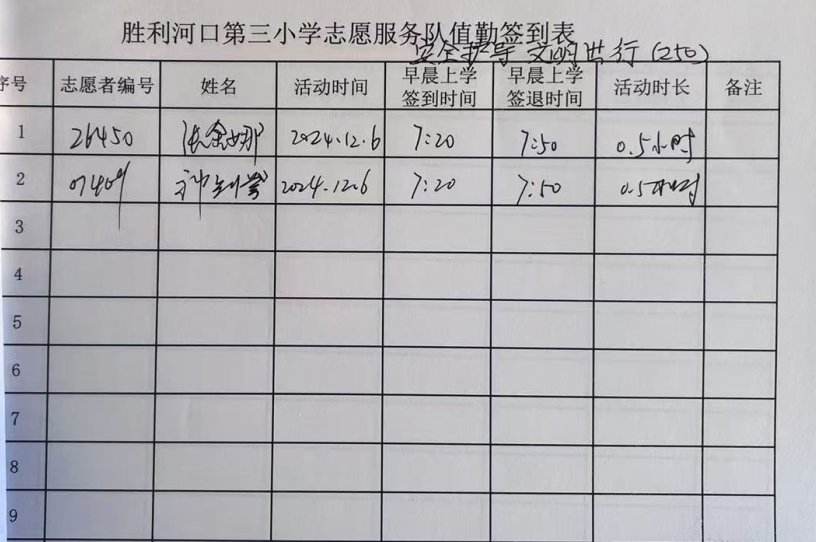 胜利河口第三小学志愿服务队值勤签到表
安全护导 文明出行 (250)
序号 志愿者编号 姓名 活动时间 早晨上学签到时间 早晨上学签退时间 活动时长 备注
1 26450 2024.12.6 7:20 7:50 0.5小时
2 07409 2024.12.6 7:20 7:50 0.5小时
3
4
5
6
7
8
9